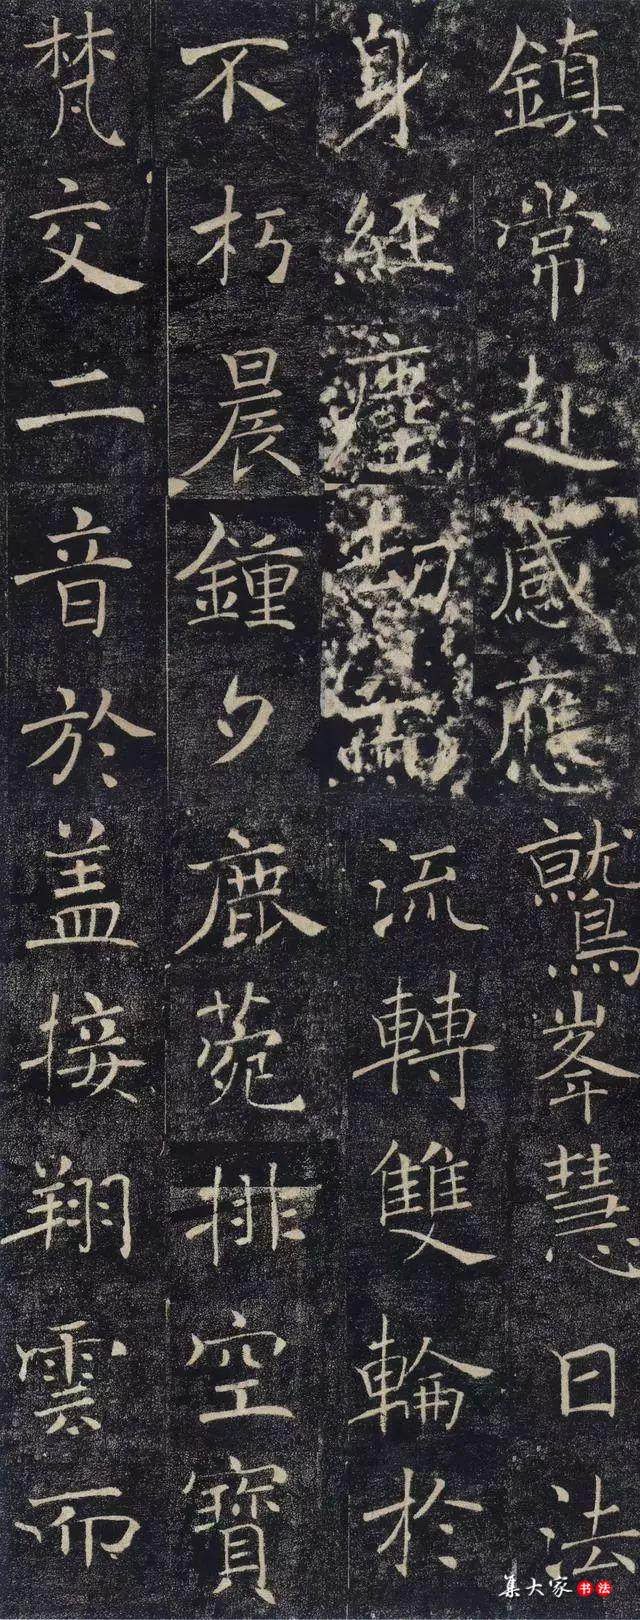 鎮常赴感應
身經塵劫而
不朽晨鍾夕
梵交二音於
鷲峯慧日法
流轉雙輪於
鹿菀排空寶
盖接翔雲而
集大家书法